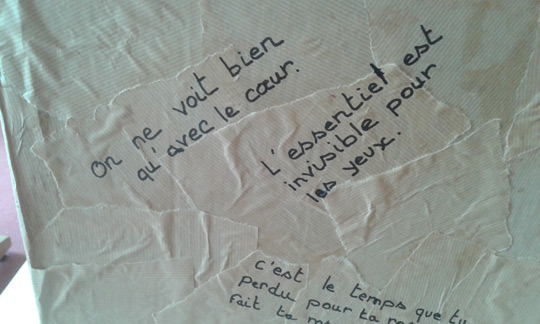 On ne voit bien
qu'avec le cœur.
L'essentiel est
invisible pour
les yeux.
C'est le temps que tu
perdu pour ta
fait ta